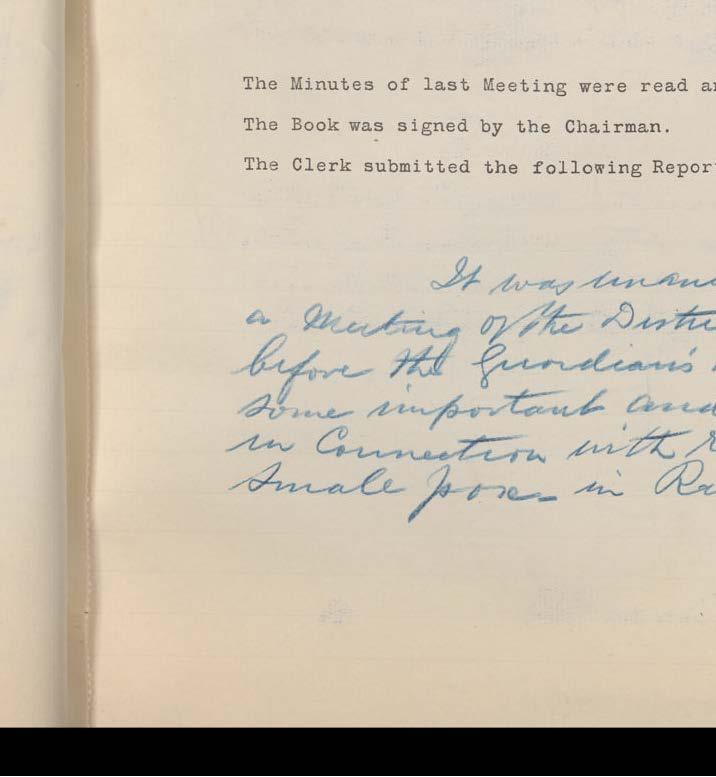 The Minutes of last Meeting were read a
The Book was signed by the Chairman.
The Clerk submitted the following Repor
It was unani
a Meeting of the Distri
before the Guardian's
some important and
in Connection with
Small pox in Ra